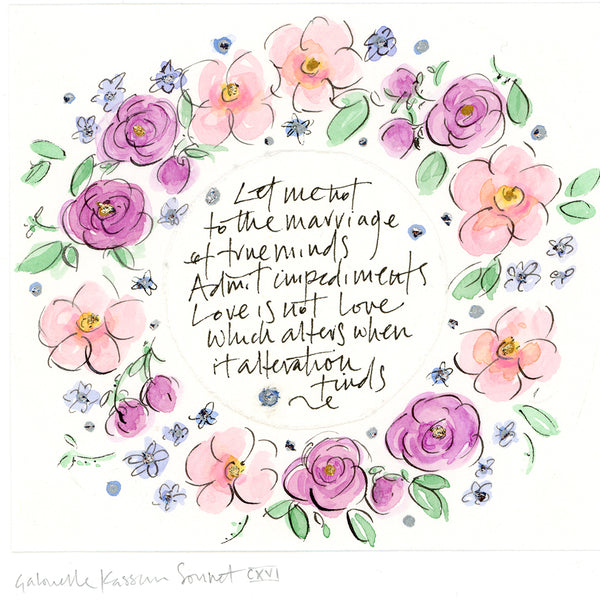 Let me not
to the marriage
of true minds
Admit impediments
Love is not Love
which alters when
it alteration
finds
Gabrielle Kassum Sonnet CXVI